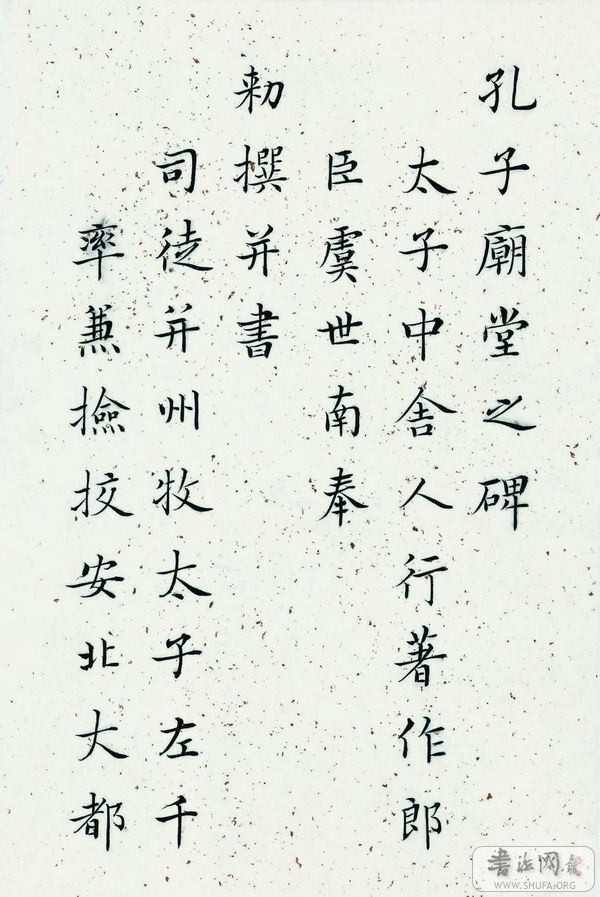 孔子廟堂之碑
太子中舍人行著作郎
臣虞世南奉
勑撰并書
司徒并州牧太子左千
率兼撿挍安北大都
書法网
WWW.SHUFA.ORG